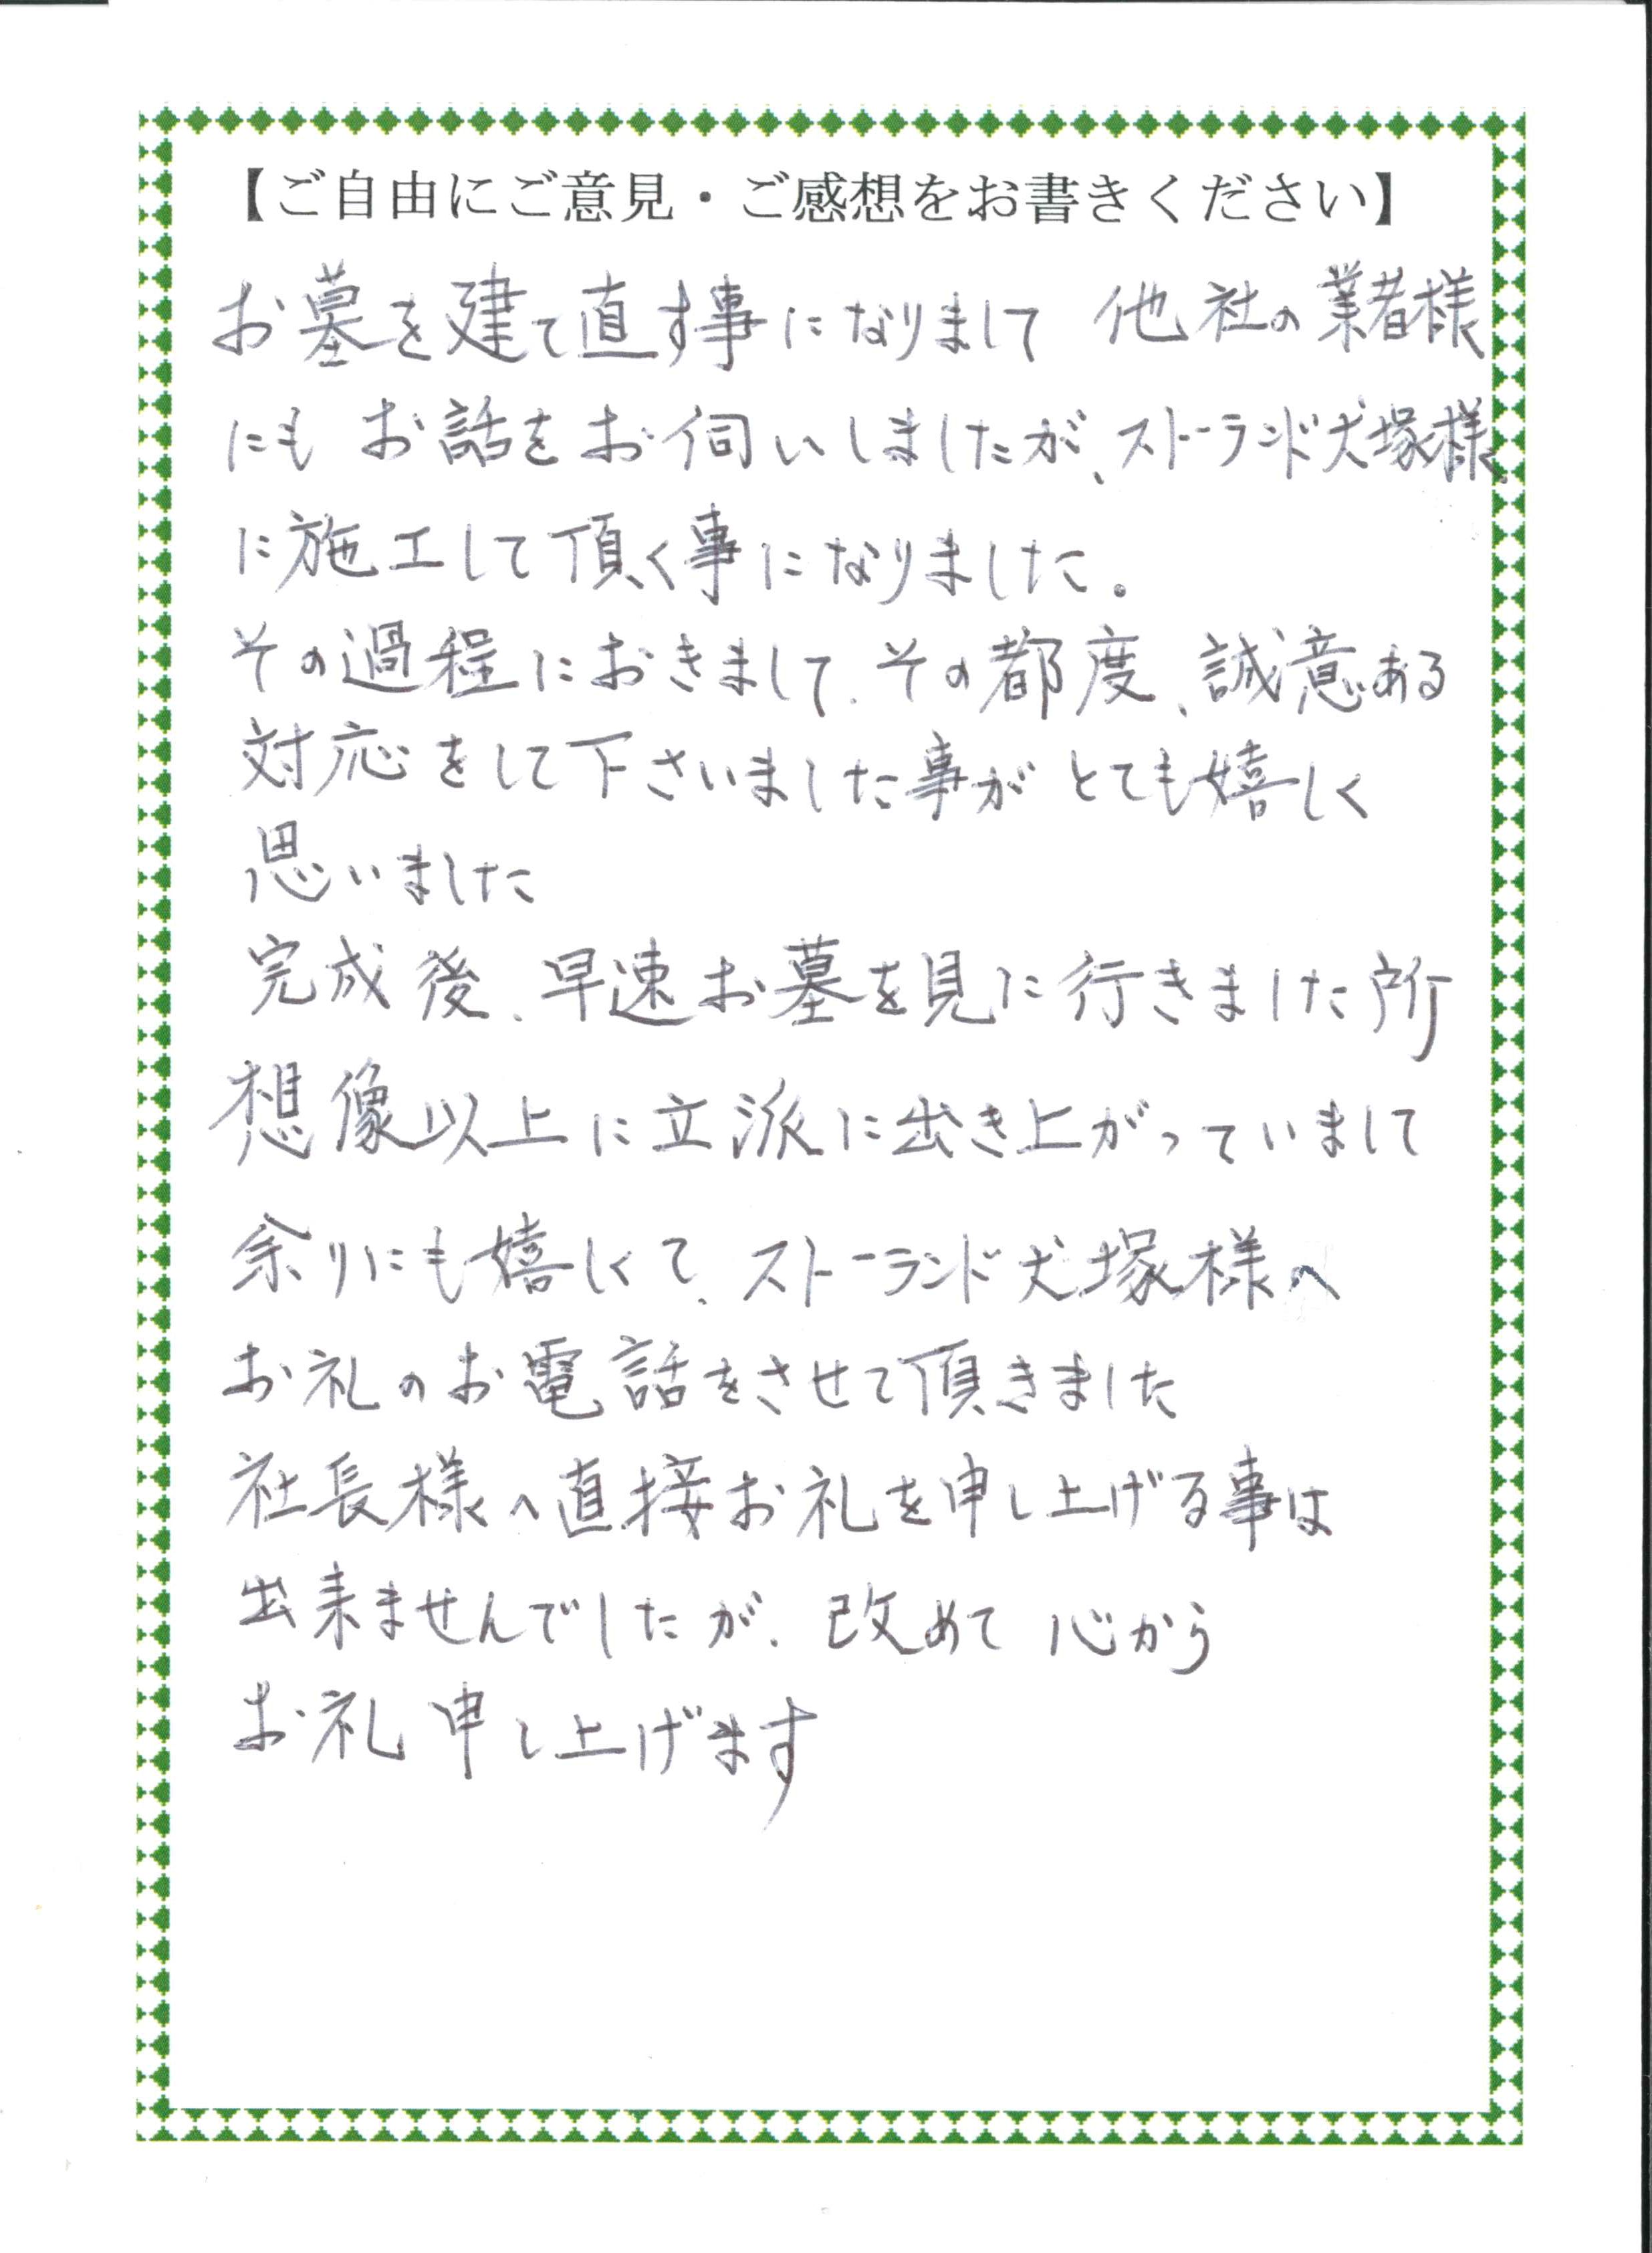 【ご自由にご意見・ご感想をお書きください】
お墓を建て直す事になりまして 他社の業者様
にも お話をお伺いしましたが、ストーランド犬塚様、
に施工して頂く事になりました。
その過程におきまして、その都度、誠意ある
対応をして下さいました事が とても嬉しく
思いました
完成後、早速お墓を見に行きました所
想像以上に立派に出き上がっていまして
余りにも嬉しくて、ストーランド犬塚様へ
お礼のお電話をさせて頂きました
社長様へ直接お礼を申し上げる事は
出来ませんでしたが、改めて 心から
お礼 申し上げます